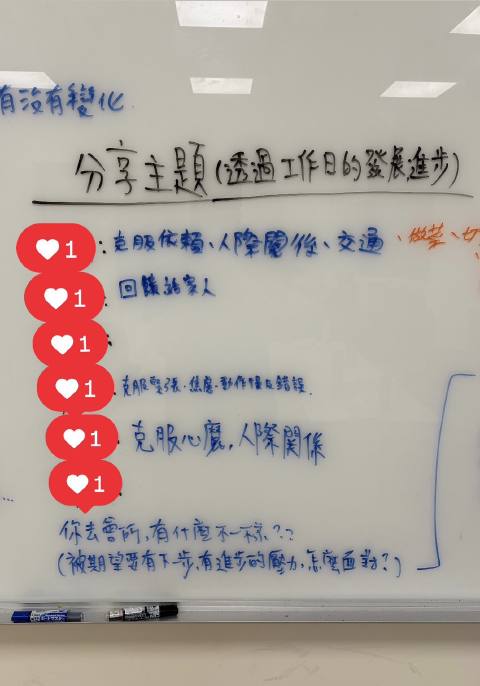 有沒有變化
分享主題(透過工作日的發展進步)
1 : 克服依賴、人際關係、交通、做菜、切
1 回饋給家人
1 :
1 克服緊張、焦慮、動作慢及錯誤.
1 克服心魔, 人際關係
1
你去會所, 有什麼不一樣??
(被期望要有下一步, 有進步的壓力, 怎麼面對?)